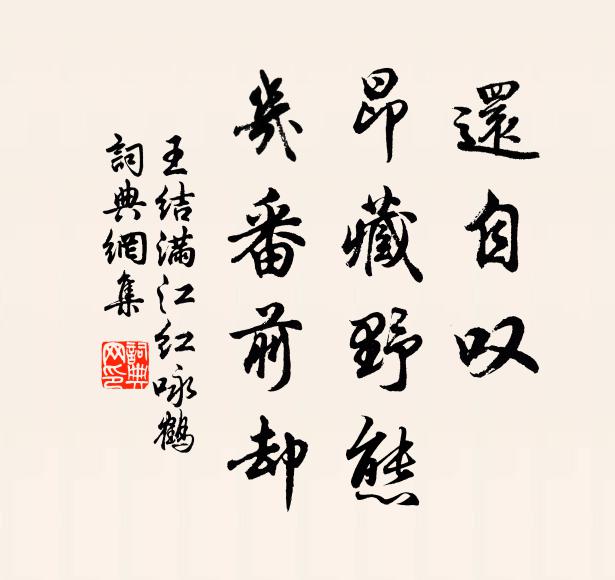 還自叹
昂藏野態
幾番前却
王結滿江紅咏鶴
詞典網集
詞典网印